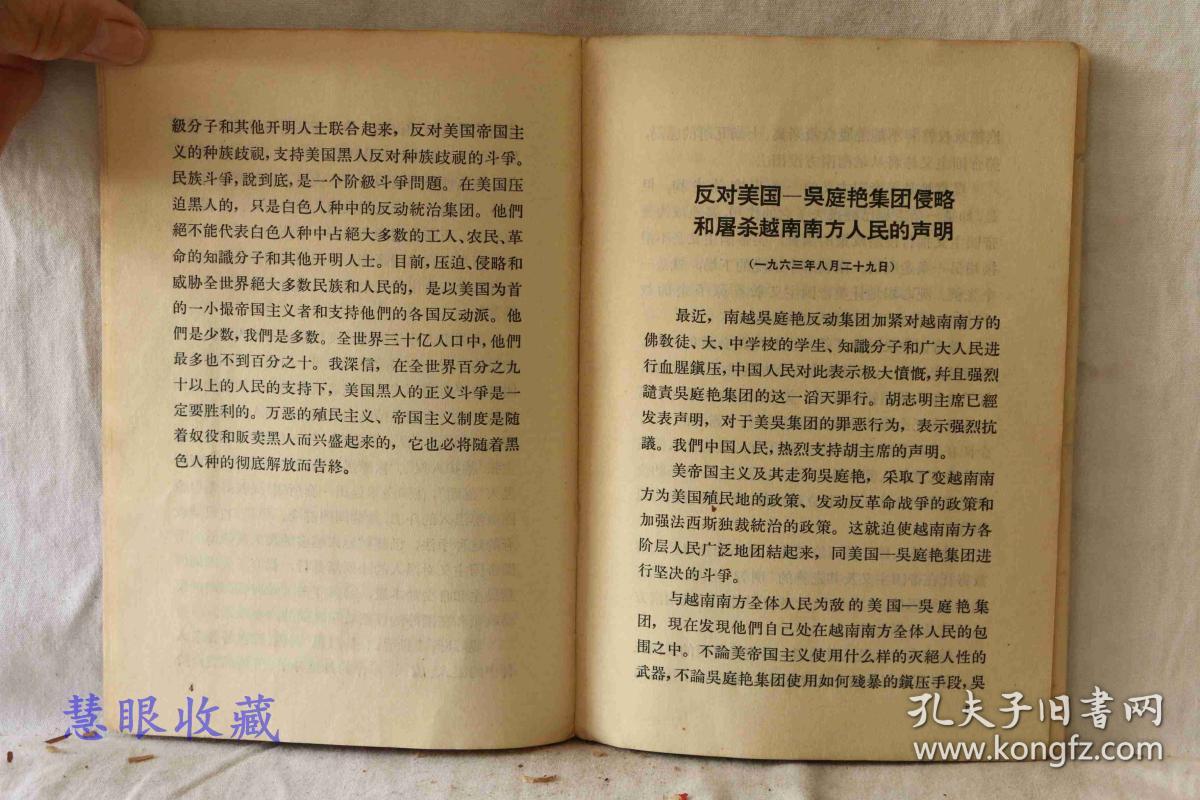 級分子和其他开明人士联合起来，反对美国帝国主
义的种族歧視，支持美国黑人反对种族歧視的斗爭。
民族斗爭，說到底，是一个阶級斗爭問題。在美国压
迫黑人的，只是白色人种中的反动統治集团。他們
絕不能代表白色人种中占絕大多数的工人、农民、革
命的知識分子和其他开明人士。目前，压迫、侵略和
威胁全世界絕大多数民族和人民的，是以美国为首
的一小撮帝国主义者和支持他們的各国反动派。他
們是少数，我們是多数。全世界三十亿人口中，他們
最多也不到百分之十。我深信，在全世界百分之九
十以上的人民的支持下，美国黑人的正义斗爭是一
定要胜利的。万恶的殖民主义、帝国主义制度是随
着奴役和販卖黑人而兴盛起来的，它也必将随着黑
色人种的彻底解放而告終。
4
反对美国—吳庭艳集团侵略
和屠杀越南南方人民的声明
（一九六三年八月二十九日）
最近，南越吳庭艳反动集团加紧对越南南方的
佛教徒、大、中学校的学生、知識分子和广大人民进
行血腥鎭压，中国人民对此表示极大愤慨，幷且强烈
譴責吳庭艳集团的这一滔天罪行。胡志明主席已經
发表声明，对于美吳集团的罪恶行为，表示强烈抗
議。我們中国人民，热烈支持胡主席的声明。
美帝国主义及其走狗吳庭艳，采取了变越南南
方为美国殖民地的政策、发动反革命战爭的政策和
加强法西斯独裁統治的政策。这就迫使越南南方各
阶层人民广泛地团結起来，同美国—吳庭艳集团进
行坚决的斗爭。
与越南南方全体人民为敌的美国—吳庭艳集
团，現在发現他們自己处在越南南方全体人民的包
围之中。不論美帝国主义使用什么样的灭絕人性的
武器，不論吳庭艳集团使用如何殘暴的鎭压手段，吳
慧眼收藏
孔夫子旧书网
www.kongfz.com